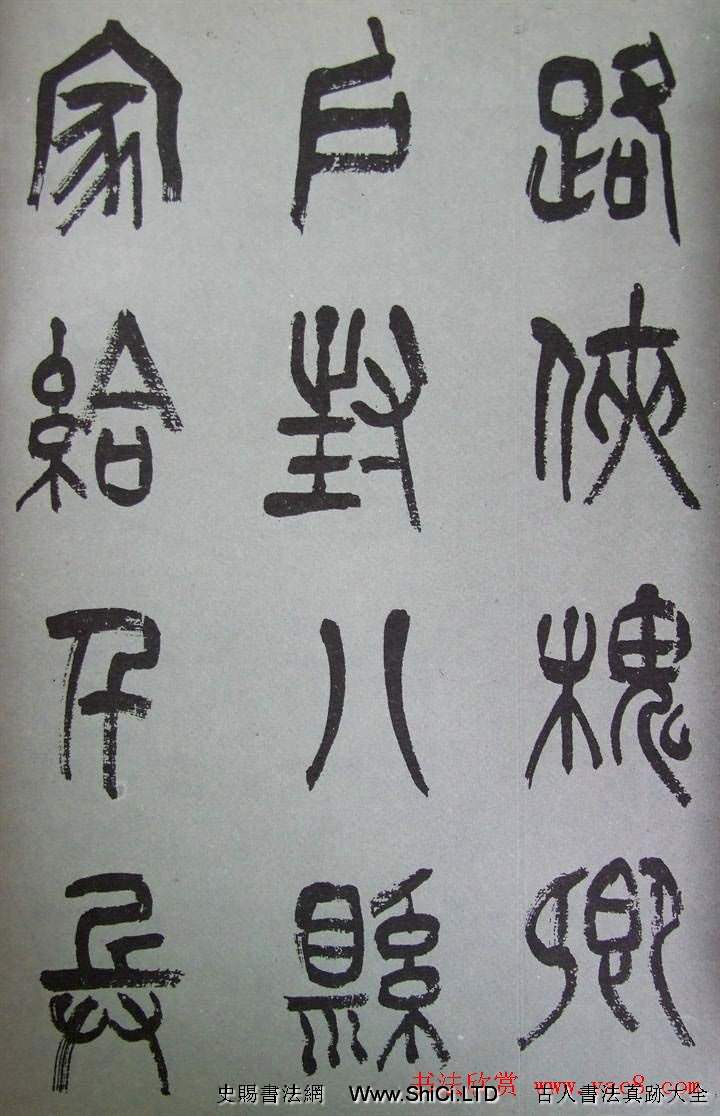 路俠槐卿
戶封八縣
家給千兵
书法欣赏 www.yac8.com
史賜書法網 Www.ShiCi.LTD 古人書法真跡大全